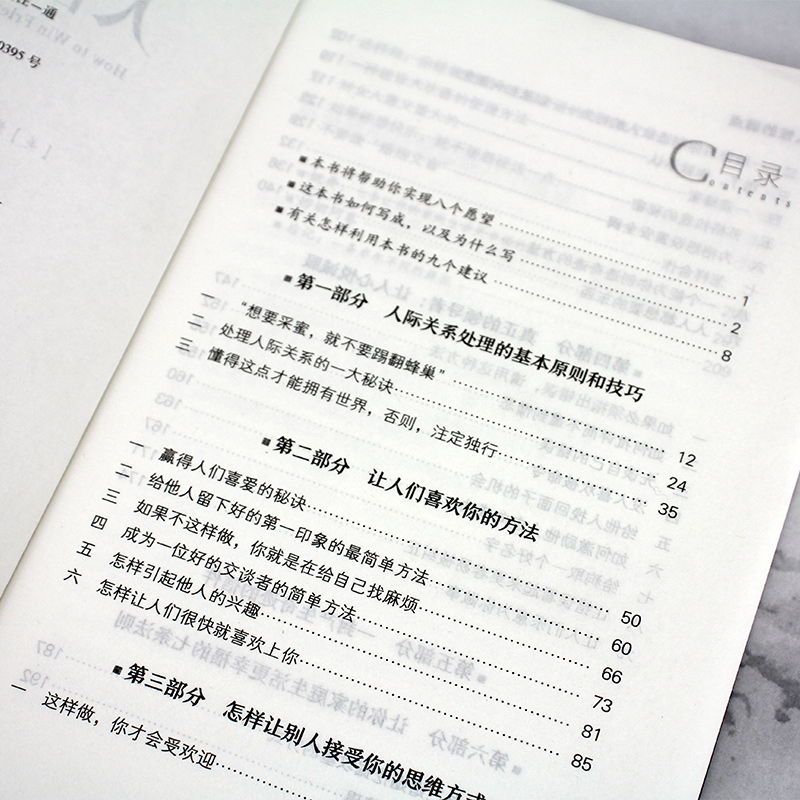 上一通
0395 号
How to Win Frie
目录
Contents
■本书将帮助你实现八个愿望 1
■这本书如何写成，以及为什么写 2
■有关怎样利用本书的九个建议 8
■第一部分 人际关系处理的基本原则和技巧
一 “想要采蜜，就不要踢翻蜂巢” 12
二 处理人际关系的一大秘诀 24
三 懂得这点才能拥有世界，否则，注定独行 35
■第二部分 让人们喜欢你的方法
一 赢得人们喜爱的秘诀 50
二 给他人留下好的第一印象的最简单方法 60
三 如果不这样做，你就是在给自己找麻烦 66
四 成为一位好的交谈者的简单方法 73
五 怎样引起他人的兴趣 81
六 怎样让人们很快就喜欢上你 85
■第三部分 怎样让别人接受你的思维方式
一 这样做，你才会受欢迎